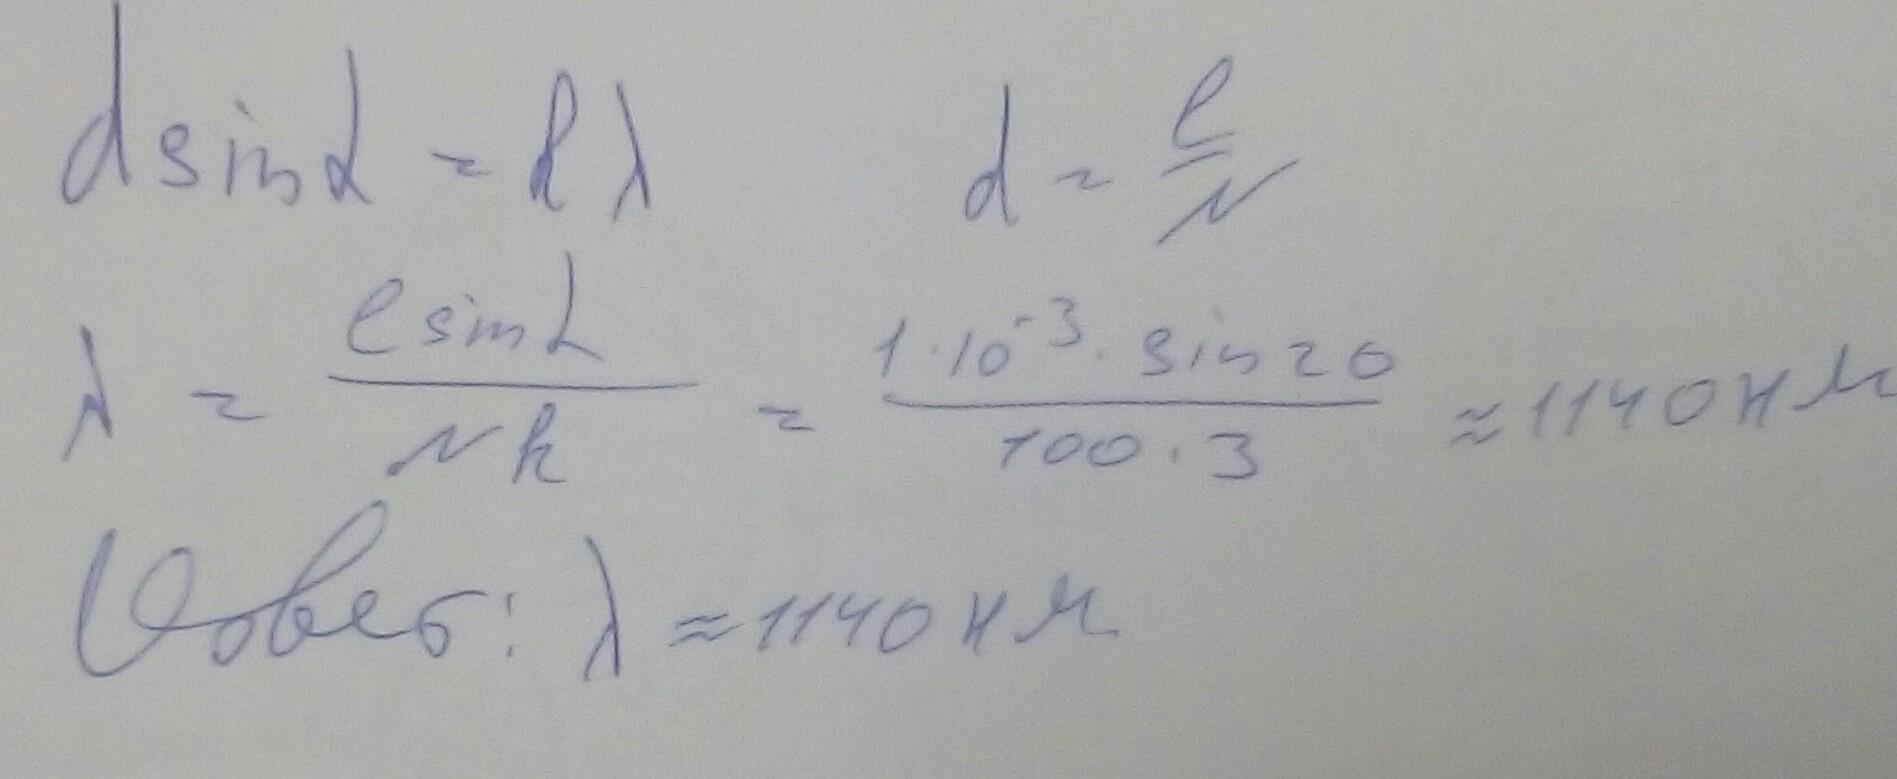 d sin α = kλ d = l/N
λ = l sin α / Nk = 1·10⁻³·sin 20 / 100·3 ≈ 1140 нм
Ответ: λ ≈ 1140 нм